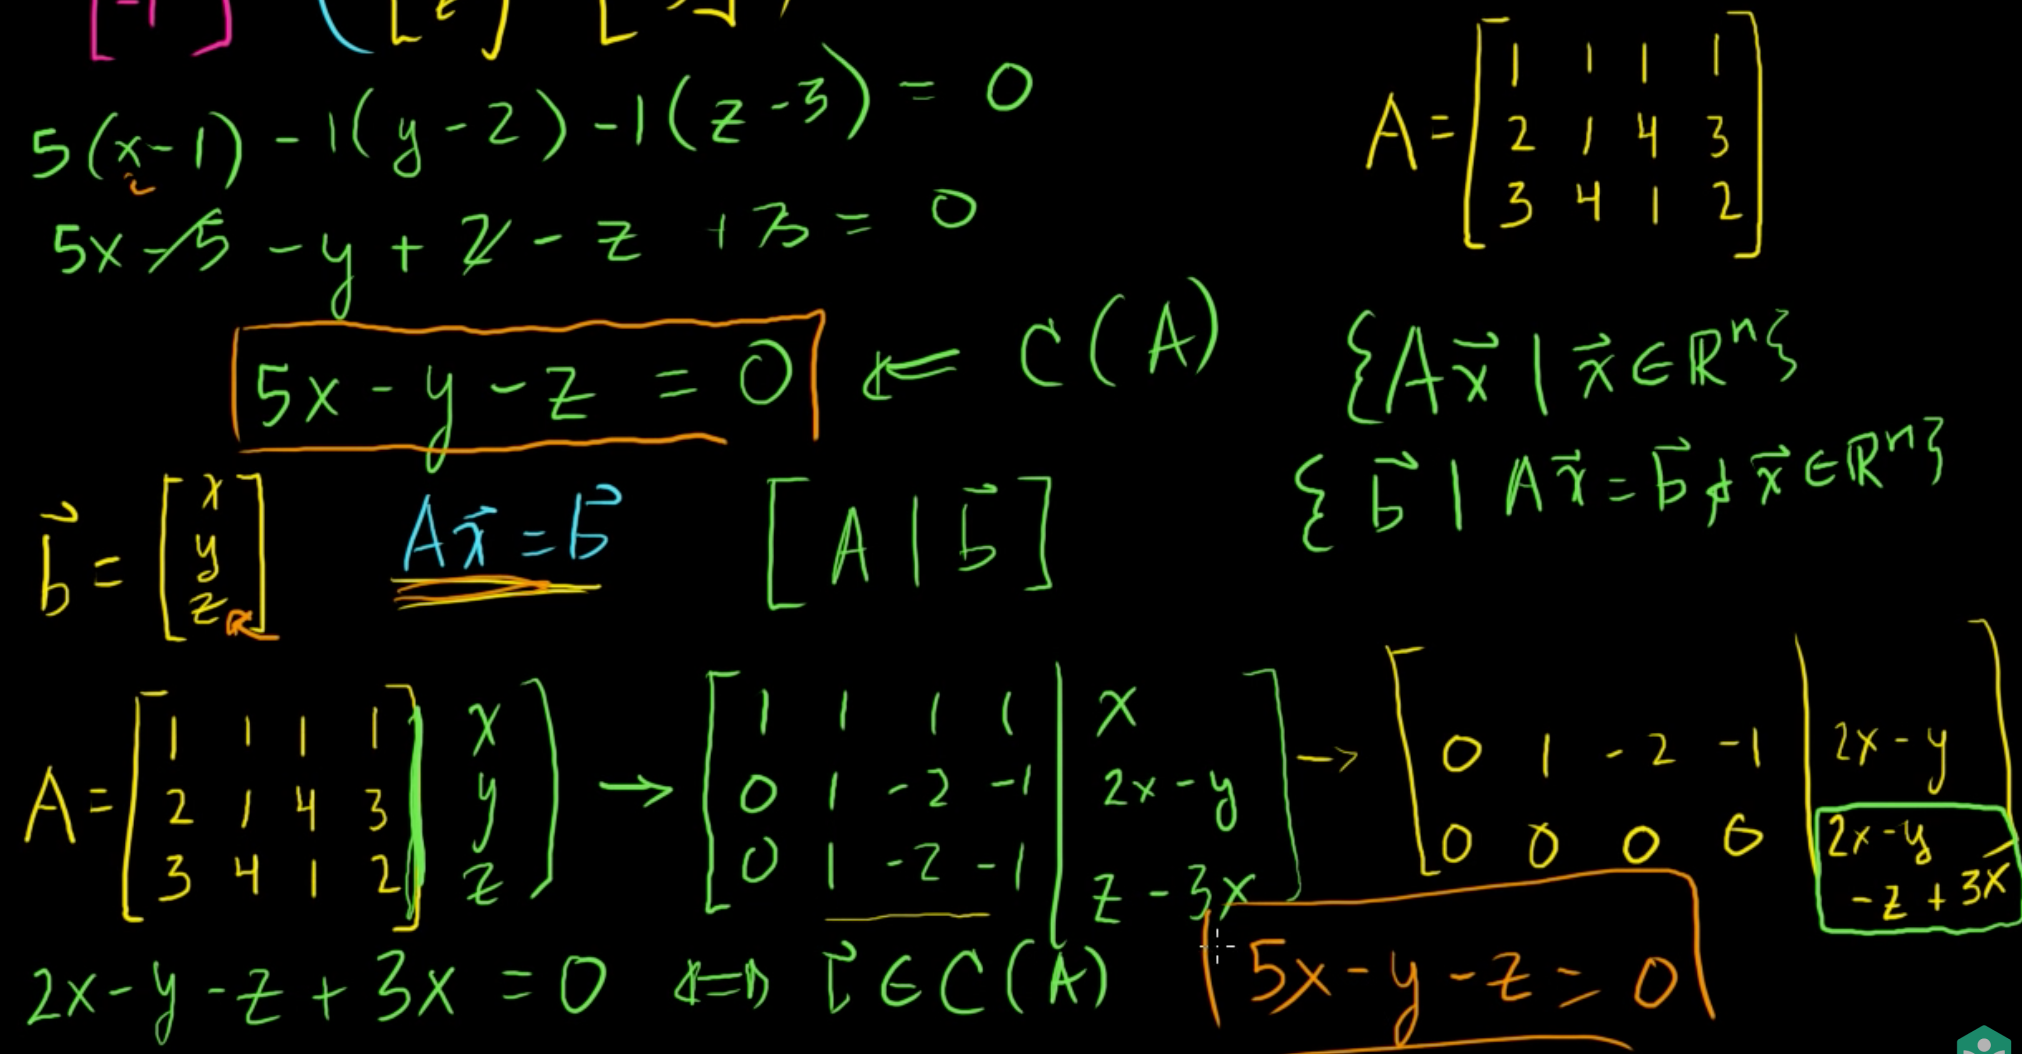 5(x-1) -1(y-2) -1(z-3) = 0
5x-5 -y+2-z+3 = 0
5x-y-z = 0 ⇐ C(A)
A= [1 1 1 1
2 1 4 3
3 4 1 2]
{Ax⃗ | x⃗ ∈ ℝⁿ}
{b⃗ | Ax⃗ = b⃗ & x⃗ ∈ ℝⁿ}
b⃗ = [x
y
z]
Ax⃗ = b⃗
[A | b⃗]
A= [1 1 1 1 | x
2 1 4 3 | y
3 4 1 2 | z]
→ [1 1 1 1 | x
0 1 -2 -1 | 2x-y
0 1 -2 -1 | z-3x]
→ [0 1 -2 -1 | 2x-y
0 0 0 0 | 2x-y
-z+3x]
2x-y-z+3x = 0 ⇔ b⃗ ∈ C(A)
5x-y-z = 0